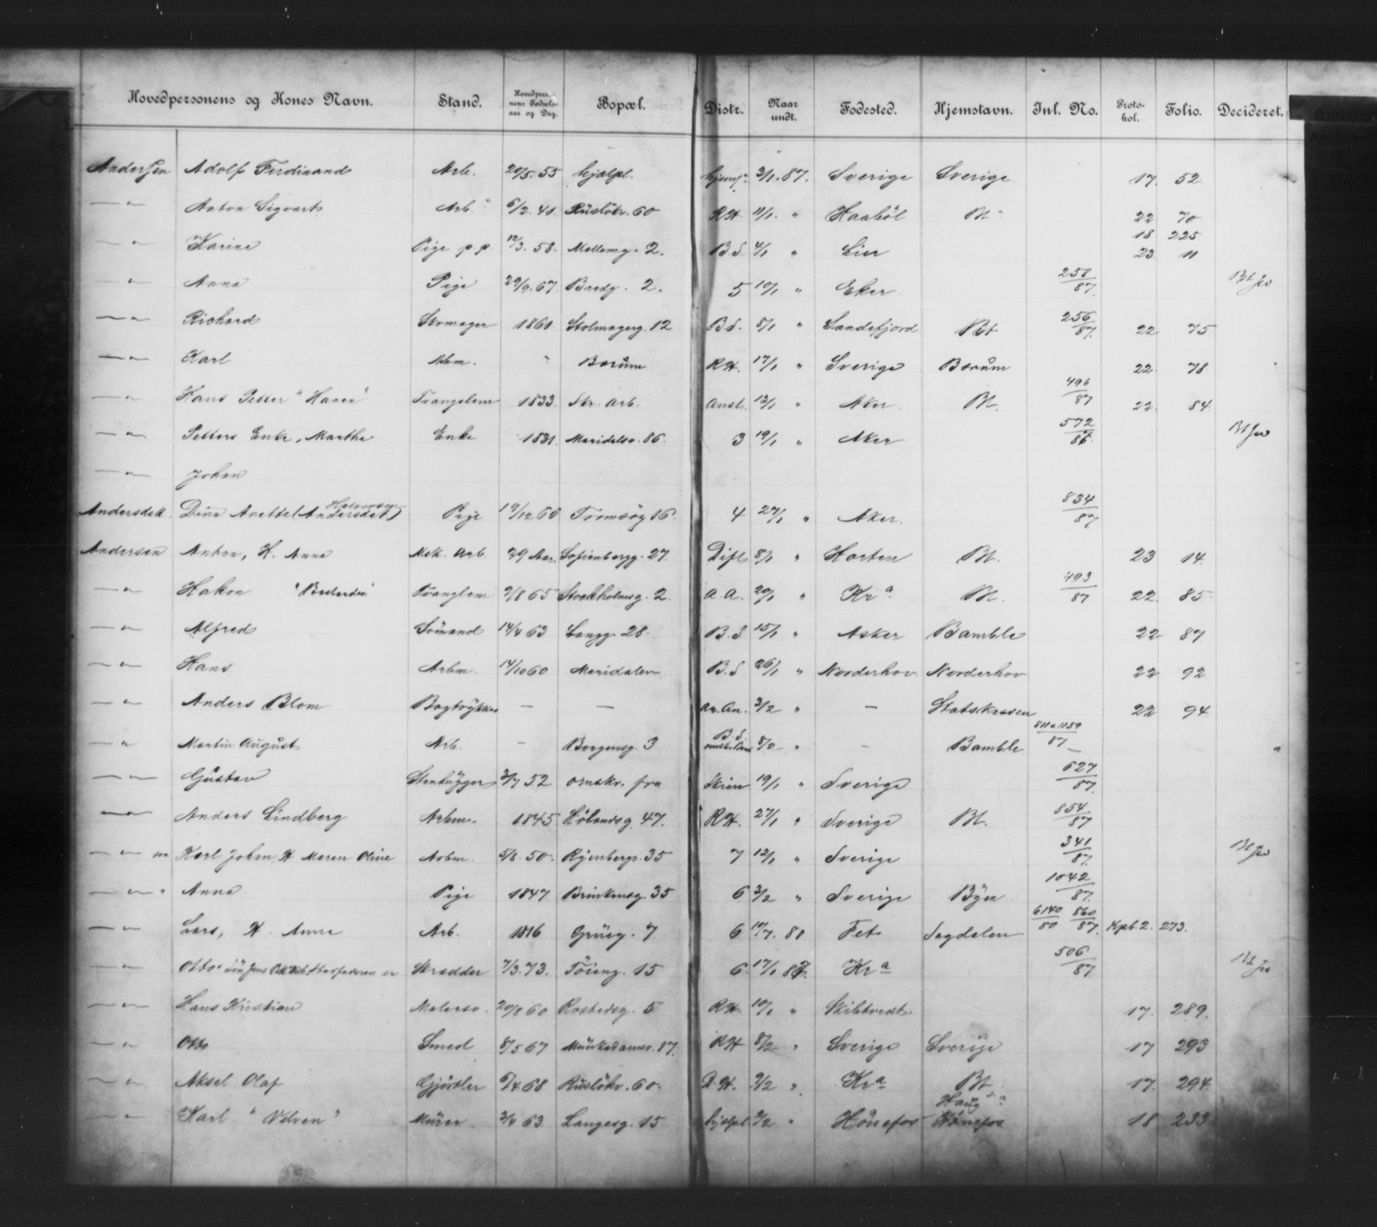 Hovedpersonens og Kones Navn. Stand. Hovedpersonens Fødselsaar og Dag. Bopæl. Distr. Naar undt. Fødested. Hjemstavn. Inl. No. Protokol. Folio. Decideret.
Andersen Adolf Ferdinand Arb. 20/5. 55 hjælpl. 3/1. 87. Sverige Sverige 17. 52
— " — Anton Sigvart Arb. 6/2. 41 Rusløkv. 60 R.H. 11/1. " Haabøl Bt. 22 70
18 225
— " — Karine Pige p.p. 12/3. 58. Mellemg. 2. B.S. 4/1 " Lier 23 11
— " — Anna Pige 29/9. 67. Bredg. 2. 5 10/1 " Eker 258/87.
— " — Richard Skomager 1861 Stolmagerg. 12 B.S. 8/1 " Sandefjord Bt 256/87. 22 75
— " — Karl Arbm. " Bærum R.H. 17/1 " Sverige Bærum 22 78
— " — Hans Petter Tvangslem 1833. Str. Arb. Anst. 12/1 " Aker Bt. 496/87 22. 84
— " — Petters Enke, Marthe Enke 1821. Maridalsv. 86. 3 19/1 " Aker 572/86.
— " — Johan
Andersdatt. Dina Anette (Andersdatt) Pige 19/12 60 Tromsøg 16. 4 27/1 " Aker. 834/87
Andersen Anton, H. Anna Mek. Arb. 29 Aar Sofienbergg. 27. Dipl. 8/1 " Horten Bt. 23 14.
— " — Hakon Tvanglem 9/8 65 Stockholmsg. 2. A.A. 20/1 " Kra Bt. 493/87 22. 85
— " — Alfred Sømand 14/4 63 Langg. 28. B.S 15/1 " Asker Bamble 22 87
— " — Hans Arbm. 14/10 60 Maridalen B.S 26/1 " Norderhov Norderhov 22 92
— " — Anders Blom Bogtrykker — — Ar. An. 3/2 " — Statskassen 22 94
— " — Martin August Arb. — Bergensg. 3 B.S. 8/2 " - Bamble 811 a 1159/87
— " — Gustav Stenhugger 3/7 52 omskv. fra Skien 19/1 " Sverige 627/87.
— " — Anders Lindberg Arbm. 1845 Hølandsg. 47. R.H. 27/1 " Sverige Bt. 854/87
— " — Karl Johan, H Maren Oline Arbm. 5/8. 50. Ryenbergv. 35 7 12/1 " Sverige 341/87.
— " — Anna Pige 1847 Brinkensg. 35 6 3/2 " Sverige Byen 1042/87.
— " — Lars, H. Anne Arb. 1816 Grueg. 7 6 17/7. 80 Fet Sagdalen 6140/80 860/87. Kpt. 2. 273.
— " — Otto Skrædder 7/3. 73. Tøieng. 15 6. 17/1 87. Kra 506/87
— " — Hans Kristian Malersv. 20/8 60 Rostedsg. 5 R.H. 10/1 " Skibtvedt. 17. 289.
— " — Otto Smed 8/5 67 Munkedamsv. 17. R.H 8/2 " Sverige Sverige 17 293
— " — Aksel Olaf Gjørtler 6/4 68 Rusløkv. 60. R.H. 9/2 " Kra Bt 17. 294.
— " — Karl Murer 2/4 63. Langesg. 15 hjælpl. 9/2 " Hønefos Haug Hønefos 18 233